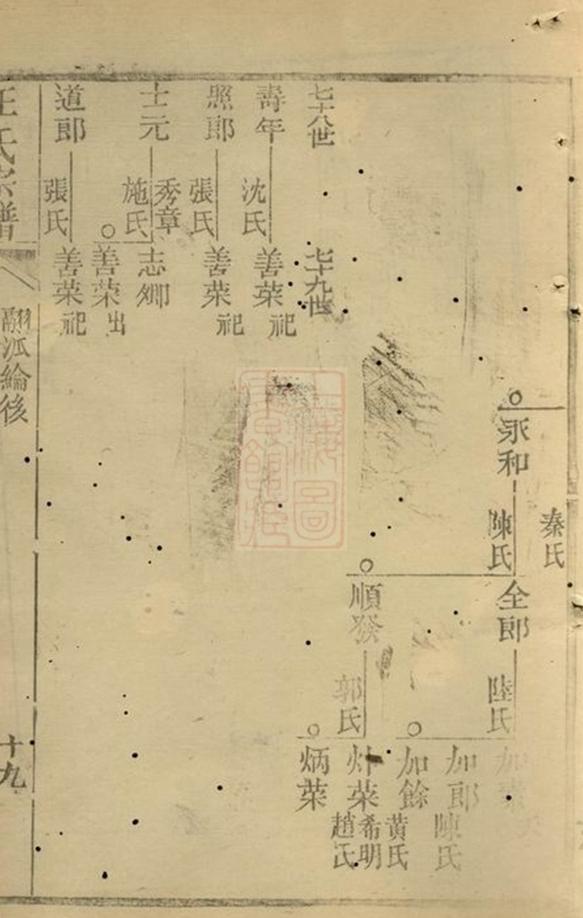 秦氏
永和
陳氏
全郎
陸氏
加郎
陳氏
加餘
黃氏
順發
郭氏
希明
趙氏
炳菜
七十八世
七十九世
壽年
沈氏
善菜祀
照郎
張氏
善菜祀
士元
秀章
施氏
志卿
善菜出
道郎
張氏
善菜祀
王氏宗譜
後
十九